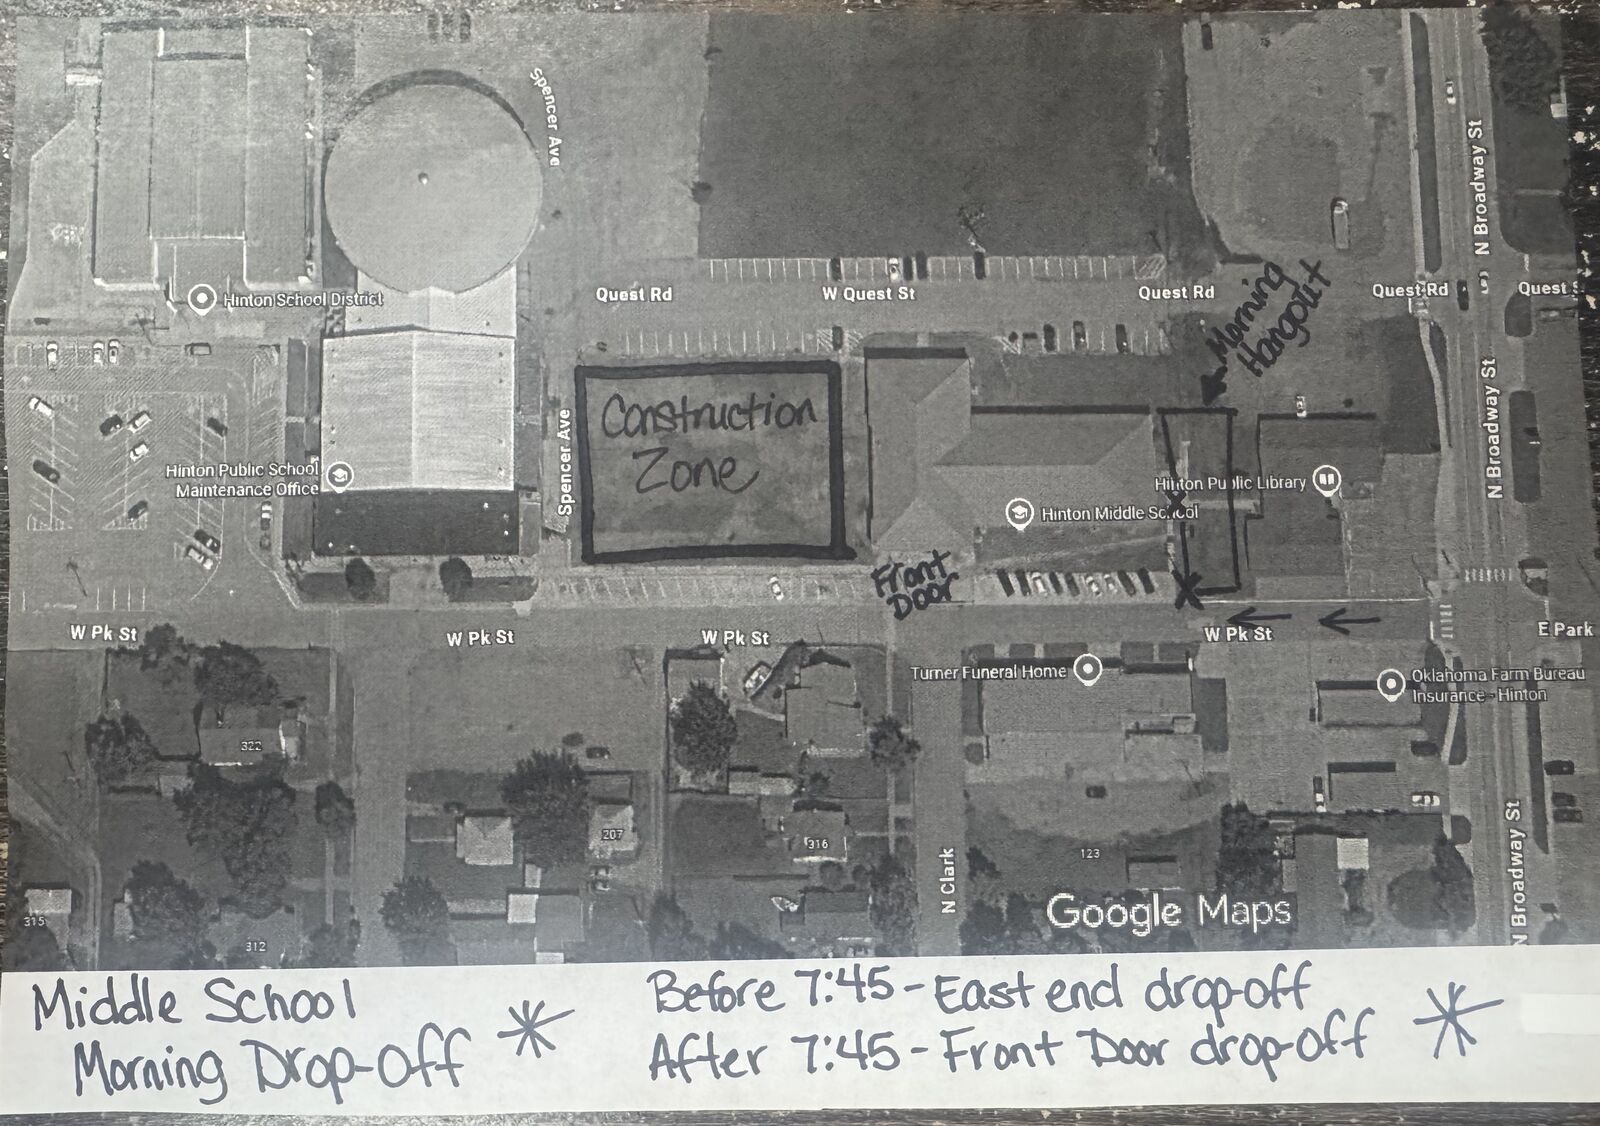 Spencer Ave
N Broadway St
Hinton School District
Quest Rd
W Quest St
Quest Rd
Quest Rd
Morning
Hangout
Construction
Zone
Spencer Ave
N Broadway St
Hinton Public School
Maintenance Office
Hinton Public Library
Hinton Middle School
Front
Door
W Pk St
W Pk St
W Pk St
W Pk St
E Park
Turner Funeral Home
Oklahoma Farm Bureau
Insurance - Hinton
322
207
316
123
N Clark
N Broadway St
315
312
Google Maps
Middle School
Morning Drop-Off
Before 7:45 - East end drop-off
After 7:45 - Front Door drop-off